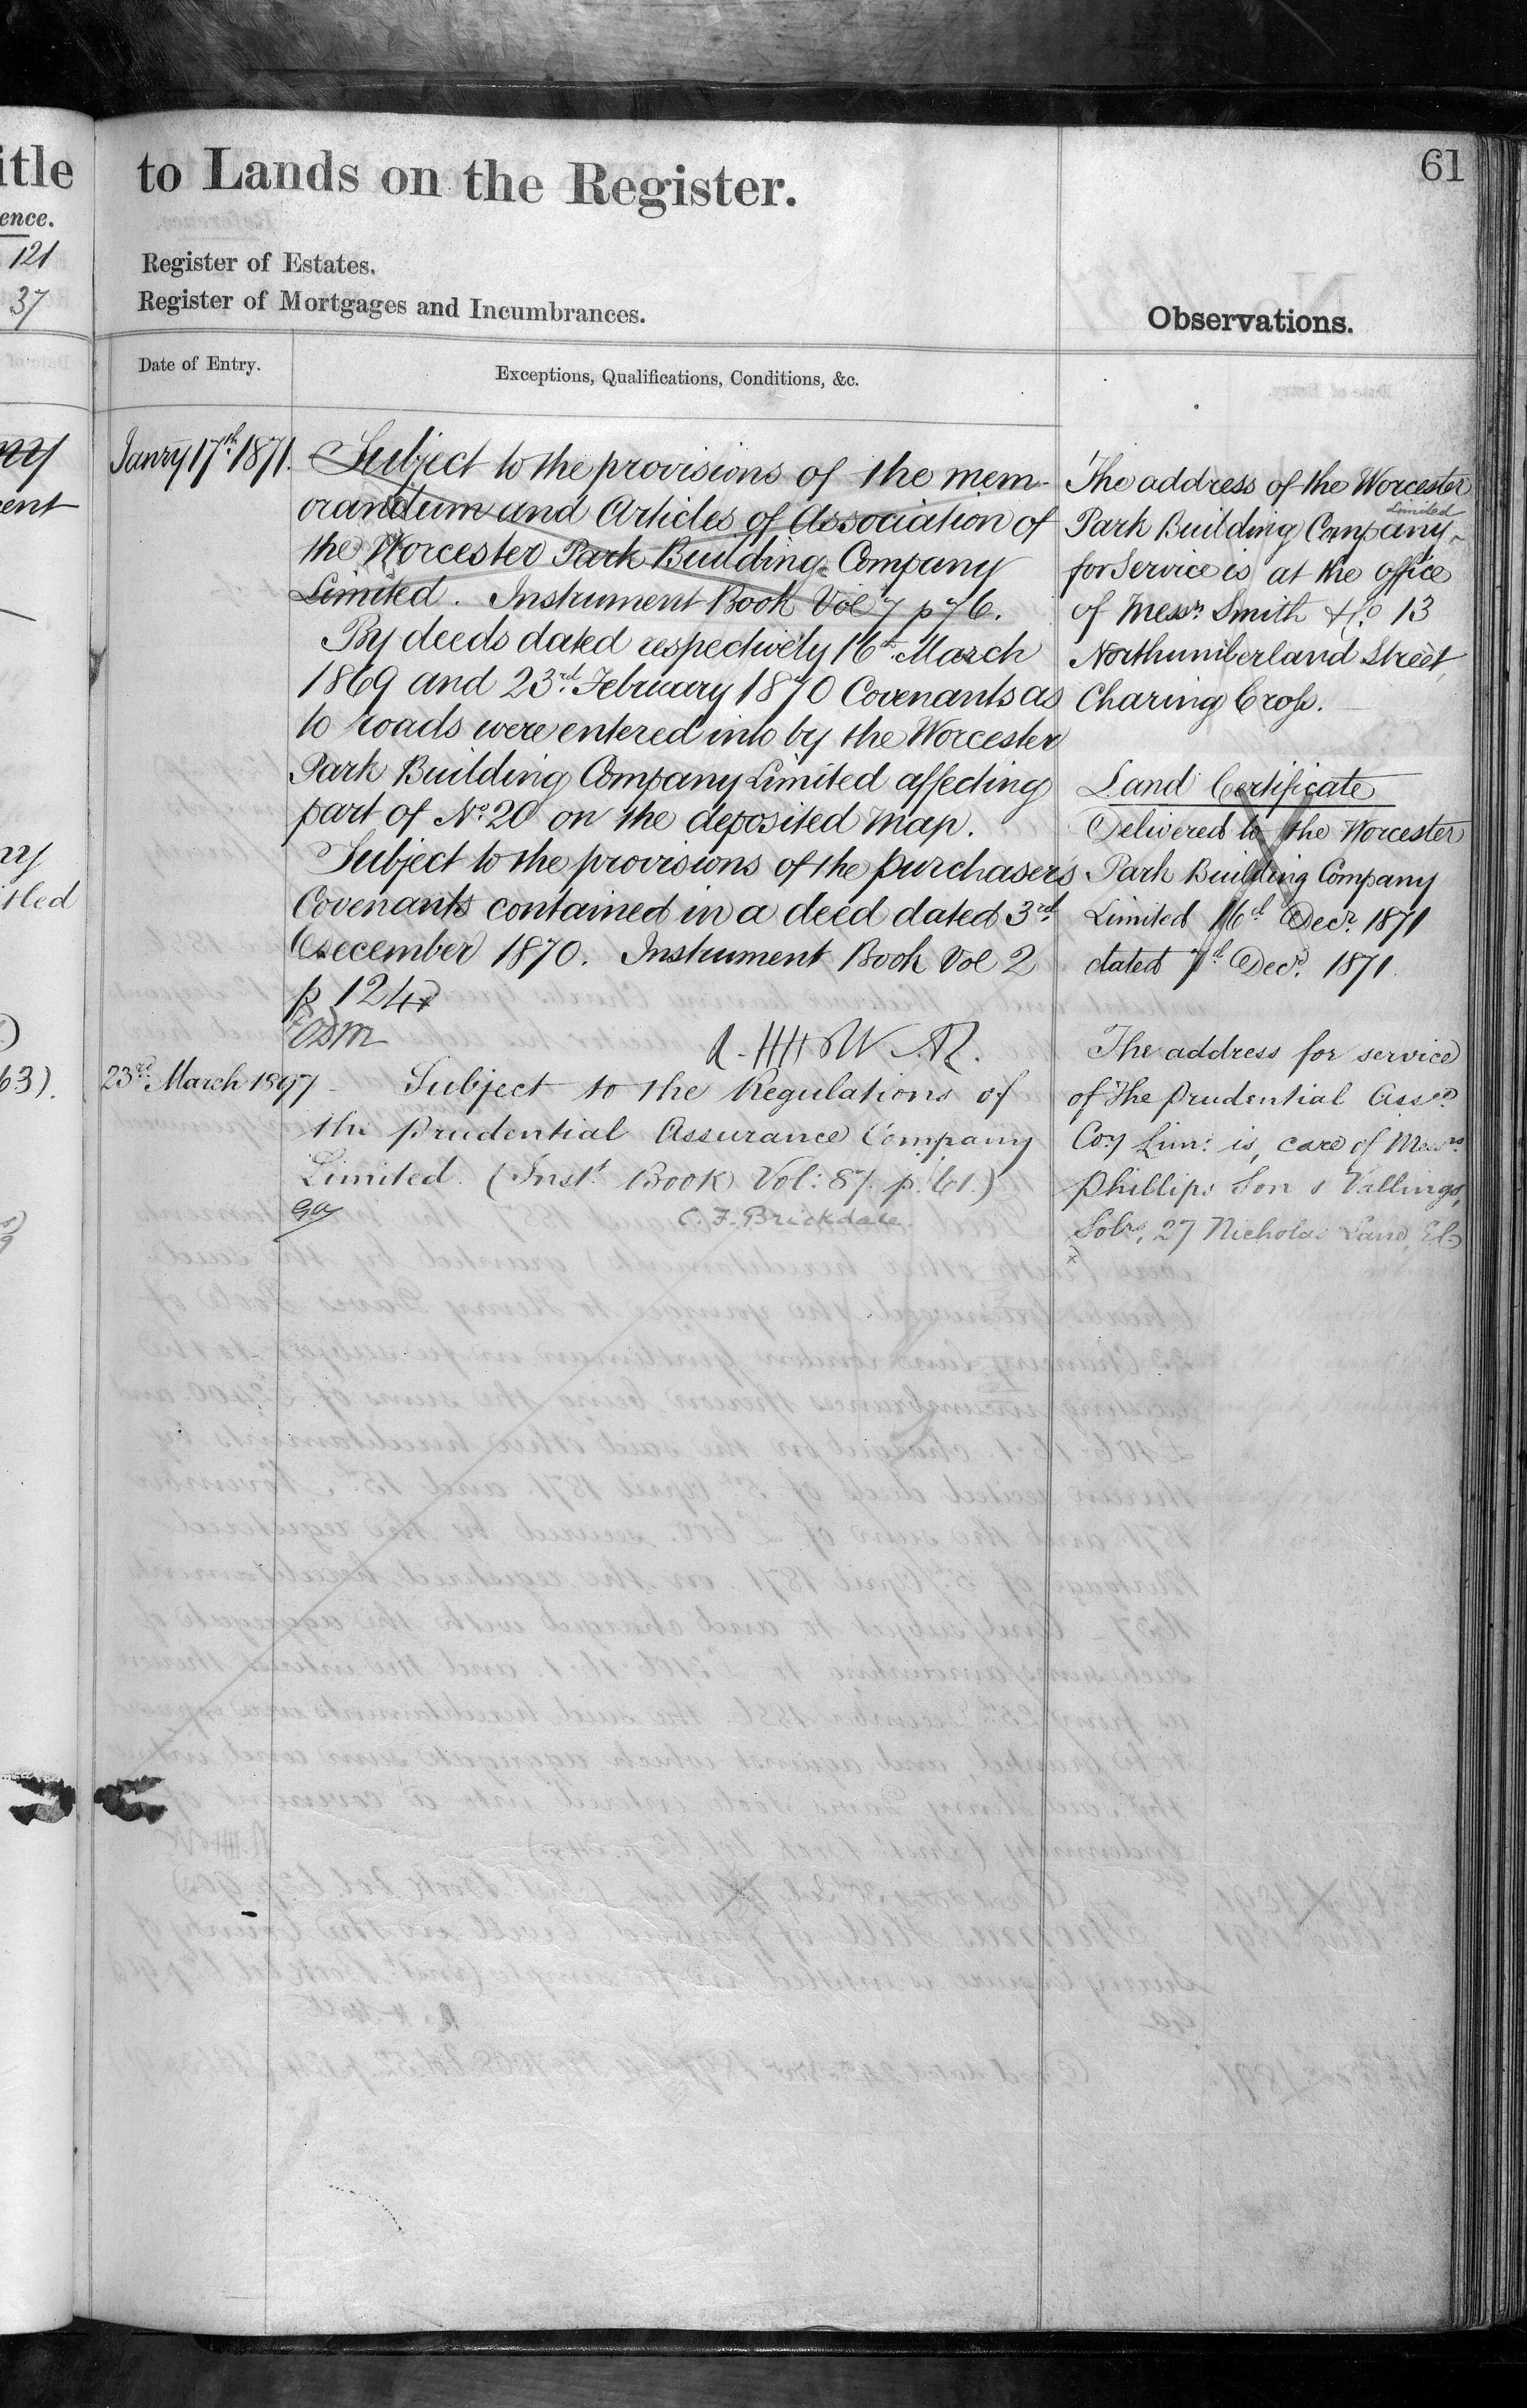 itle
ence.
121
37
ent
tled
63).
to Lands on the Register.
61
Register of Estates.
Register of Mortgages and Incumbrances.
Observations.
Date of Entry.
Exceptions, Qualifications, Conditions, &c.
Janry 17th 1871.
Subject to the provisions of the mem-
orandum and Articles of Association of
the Worcester Park Building Company
Limited. Instrument Book Vol 7 p 76.
By deeds dated respectively 16th March
1869 and 23rd February 1870 Covenants as
to roads were entered into by the Worcester
Park Building Company Limited affecting
part of No 20 on the deposited Map.
Subject to the provisions of the purchasers
Covenants contained in a deed dated 3rd
December 1870. Instrument Book Vol 2
p 124
23rd March 1897
Subject to the Regulations of
the Prudential Assurance Company
Limited. (Inst. Book Vol: 87. p. 61.)
C. F. Brickdale.
The address of the Worcester
Limited
Park Building Company
for Service is at the office
of Messrs Smith & Co 13
Northumberland Street,
Charing Cross.
Land Certificate
Delivered to the Worcester
Park Building Company
Limited 16th Decr. 1871
dated 7th Decr. 1871.
The address for service
of The Prudential Assce
Coy Limd is, care of Messrs
Phillips Son & Vallings,
Solrs, 27 Nicholas Lane, E.C.